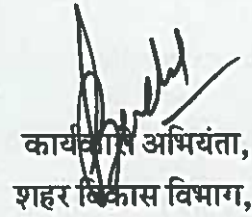 कार्यकारी अभियंता,
शहर विकास विभाग,